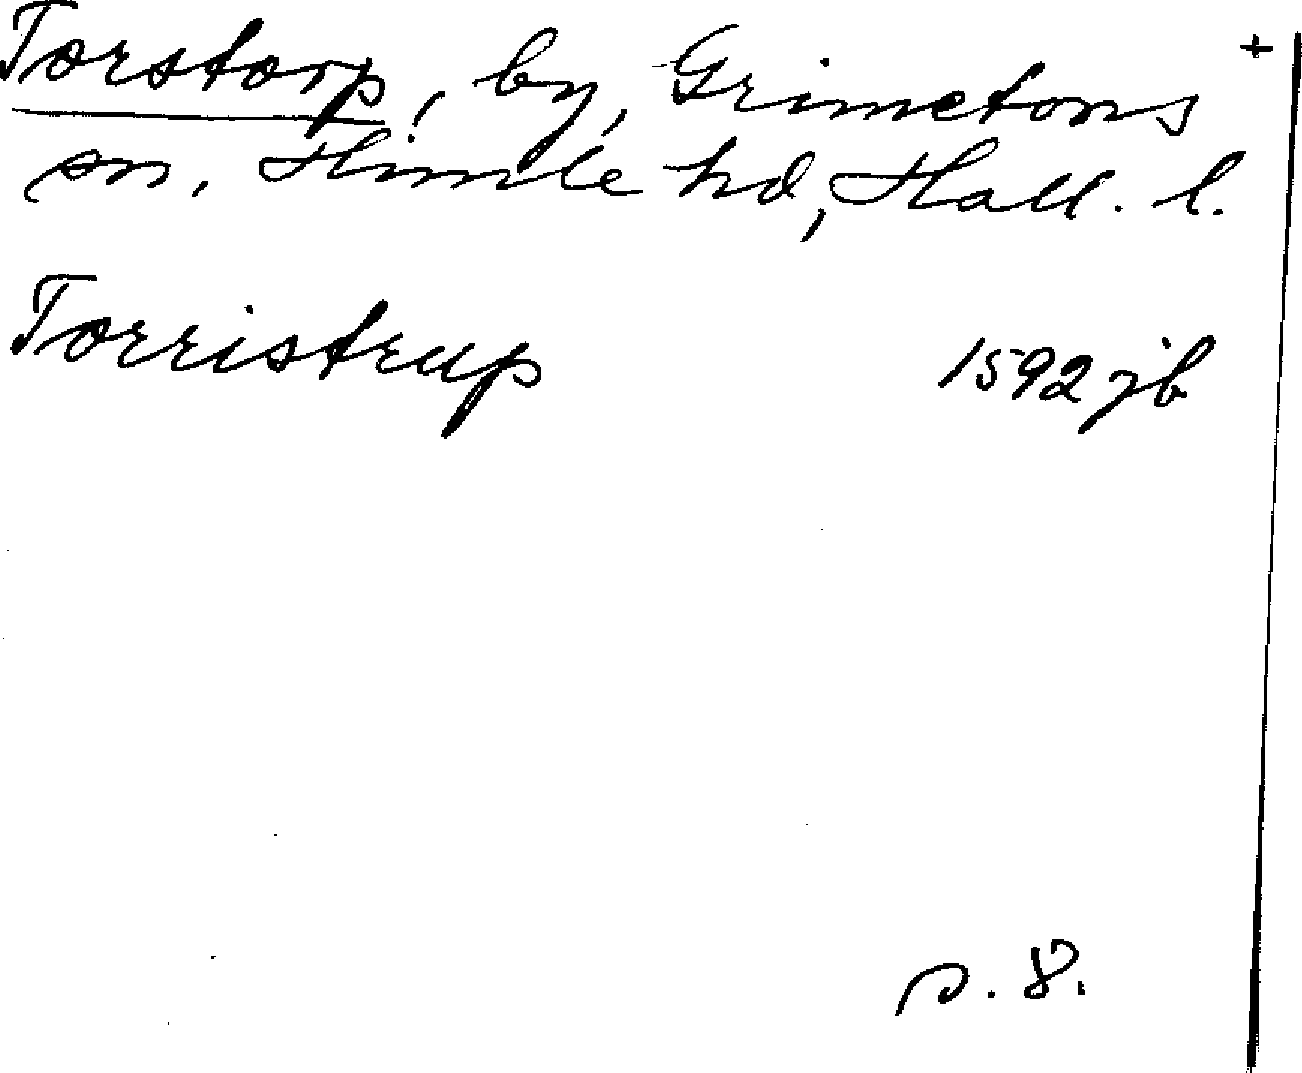 Torstorp, by, Grimetons +
sn, Himle hd, Hall. l.
Torristrup 1592 jb
s. 8.